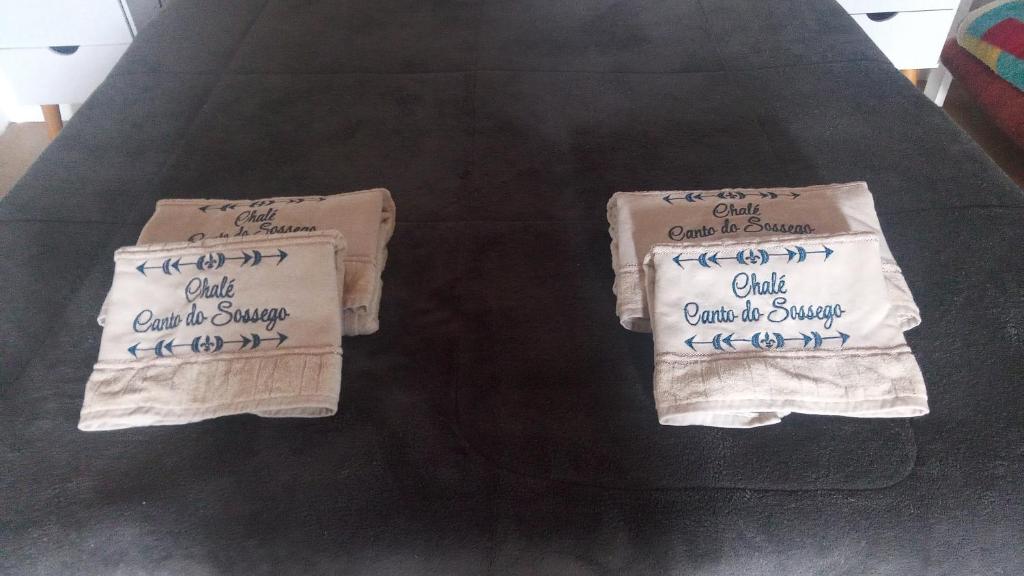 Chalé
Canto do Sossego
Chalé
Canto do Sossego
Chalé
Canto do Sossego
Chalé
Canto do Sossego